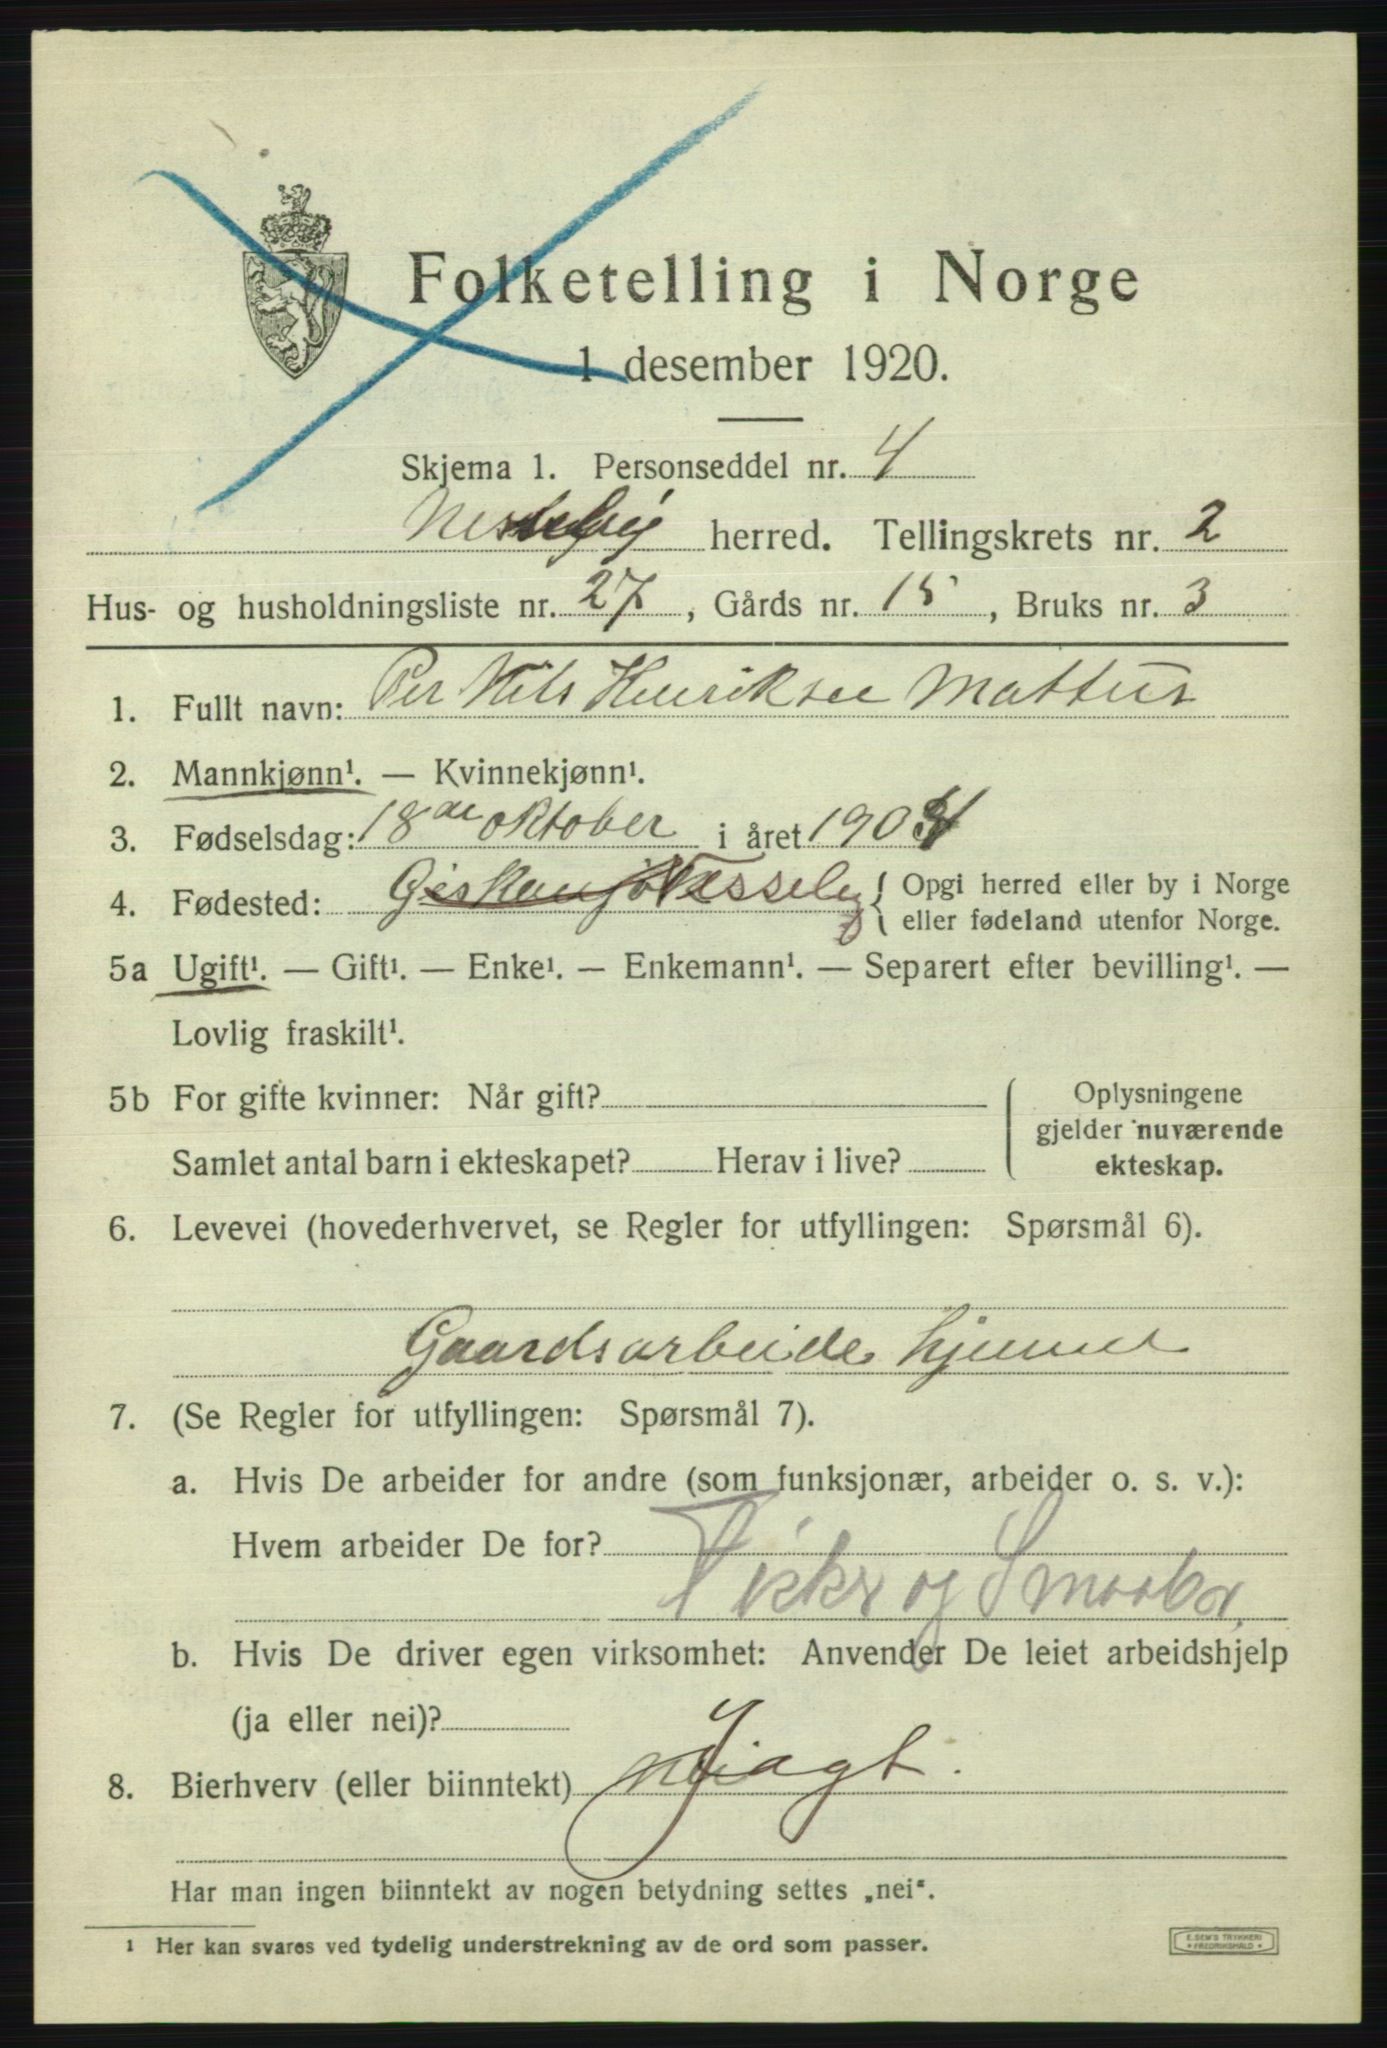 Folketelling i Norge
1 desember 1920.
Skjema 1. Personseddel nr. 4
Nesseby herred. Tellingskrets nr. 2
Hus- og husholdningsliste nr. 27, Gårds nr. 15, Bruks nr. 3
1. Fullt navn: Per Nils Henriksen Mattus
2. Mannkjønn¹. — Kvinnekjønn¹.
3. Fødselsdag: 18de oktober i året 1904
4. Fødested: Nesseby { Opgi herred eller by i Norge
eller fødeland utenfor Norge.
5a Ugift¹. — Gift¹. — Enke¹. — Enkemann¹. — Separert efter bevilling¹. —
Lovlig fraskilt¹.
5b For gifte kvinner: Når gift?
Samlet antal barn i ekteskapet? Herav i live?
Oplysningene
gjelder nuværende
ekteskap.
6. Levevei (hovederhvervet, se Regler for utfyllingen: Spørsmål 6).
Gaardsarbeide hjemme
7. (Se Regler for utfyllingen: Spørsmål 7).
a. Hvis De arbeider for andre (som funksjonær, arbeider o. s. v.):
Hvem arbeider De for?
og Smaabr.
b. Hvis De driver egen virksomhet: Anvender De leiet arbeidshjelp
(ja eller nei)?
8. Bierhverv (eller biinntekt) Jagt.
Har man ingen biinntekt av nogen betydning settes „nei".
1 Her kan svares ved tydelig understrekning av de ord som passer.
E. SEM'S TRYKKERI
FREDRIKSHALD